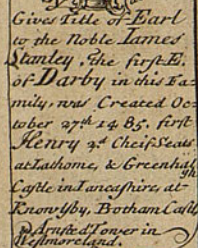 Gives Title of Earl
to the Noble Iames
Stanley, the first E.
of Darby in his Fa-
mily, was Created Oc-
tober 27th 1485. first
Henry 2d Cheif Seats
at Lathome, & Greenhal
gh
Castle in Lancashire, at
Knowlsby, Botham Castle
& Arnsted Tower in
Westmoreland.